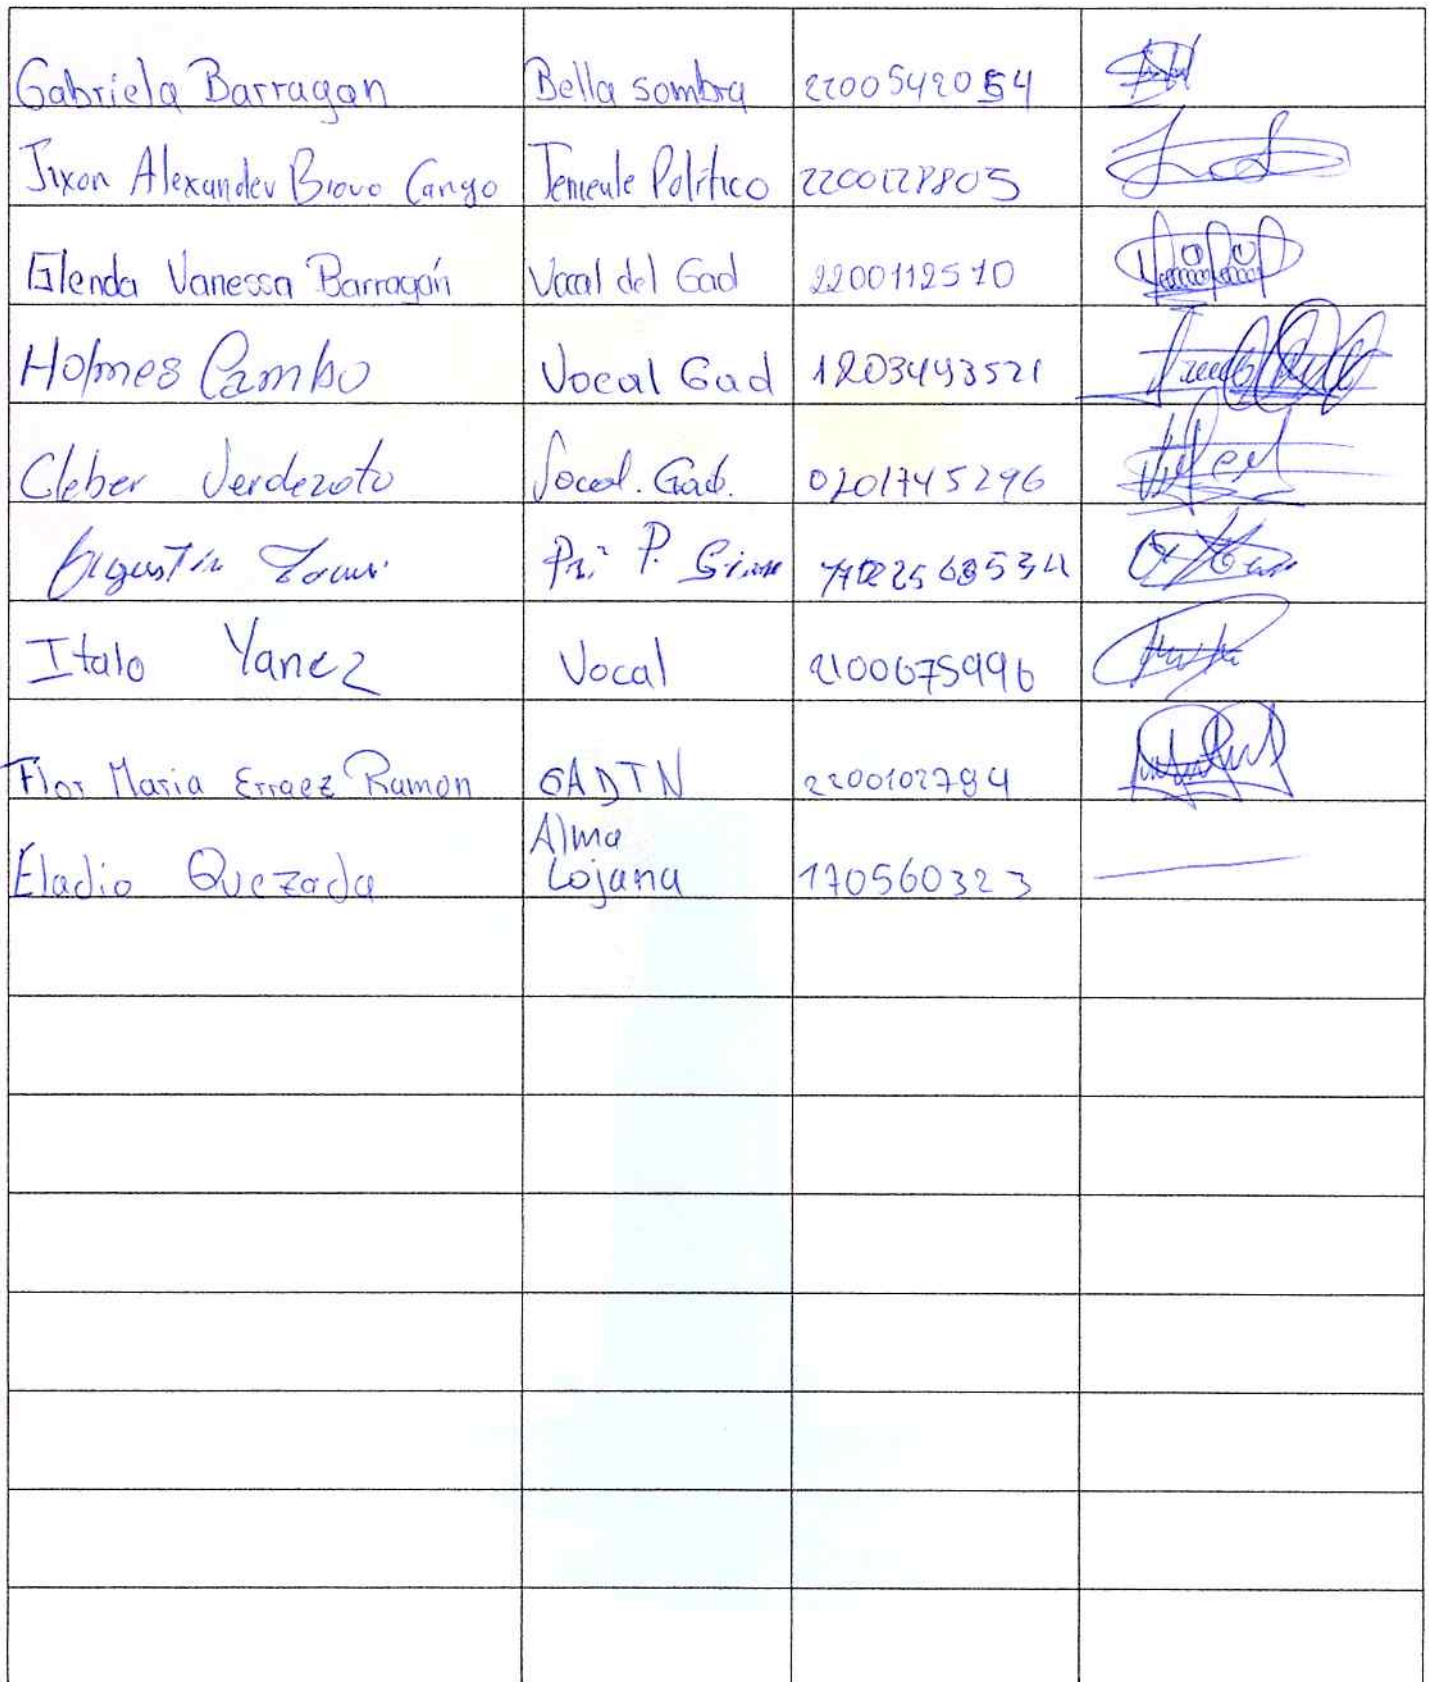 Gabriela Barragan Bella sombra 2200542054
Jixon Alexander Bravo Cango Teniente Político 2200128805
Glenda Vanessa Barragán Vocal del Gad 2200112570
Holmes Cambo Vocal Gad 1203493521
Cleber Verdezoto Vocal. Gad. 0201745296
Agustín P.
Italo Yanez Vocal 2100675996
Flor Maria Erraez Ramon GADTN 2200102794
Alma
Eladio Quezada Lojana 170560323